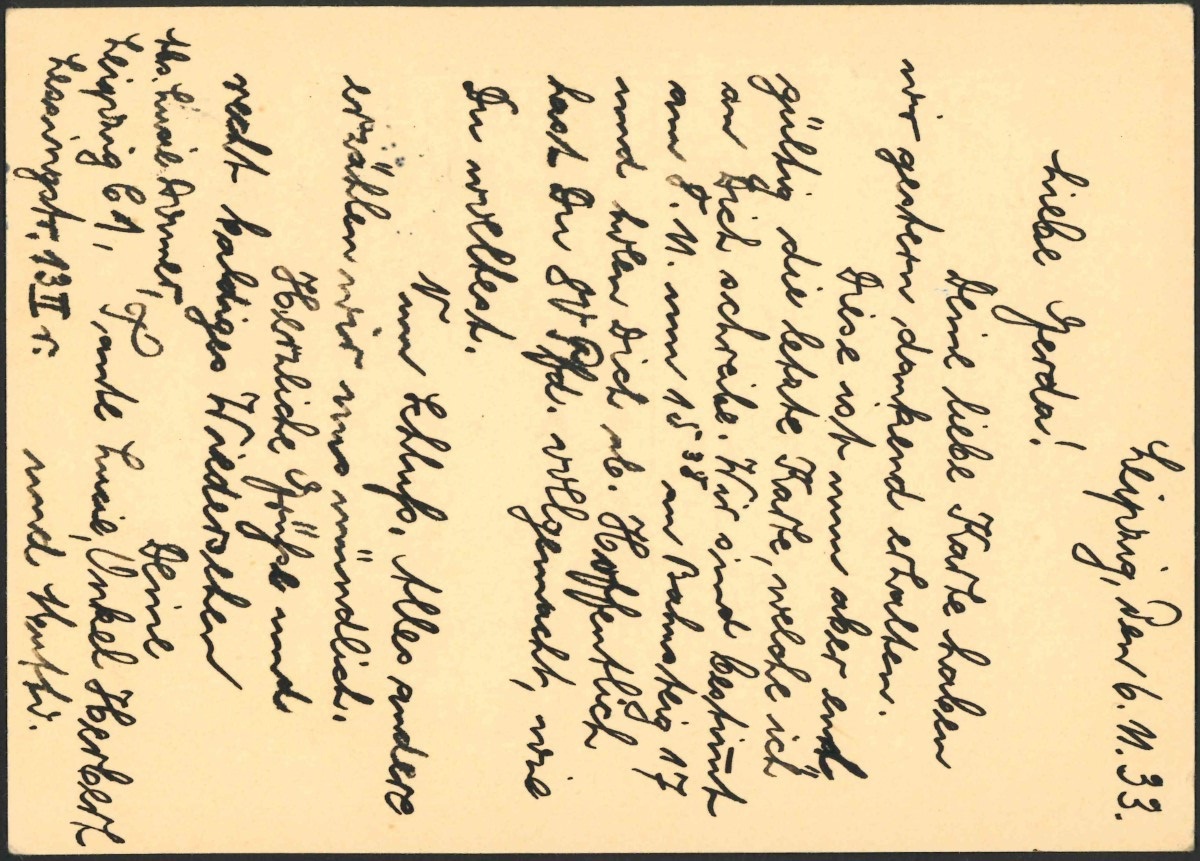 Leipzig, den 6. 11. 33.
Liebe Gerda!
Deine liebe Karte haben
wir gestern dankend erhalten.
Diese ist nun aber end
gültig die letzte Karte, welche ich
an Dich schreibe. Wir sind bestimmt
am 8. 11. um 15³⁸ an Bahnsteig 17
und holen Dich ab. Hoffentlich
hast Du 80 Pfd. vollgemacht, wie
Du wolltest.
Nun Schluß. Alles andere
erzählen wir uns mündlich.
Herzliche Grüße und
recht baldiges Wiedersehen
Deine
Tante Lucie, Onkel Herbert
und
Abs. Lucie
Leipzig C 1,
Lessingstr. 13 II r.